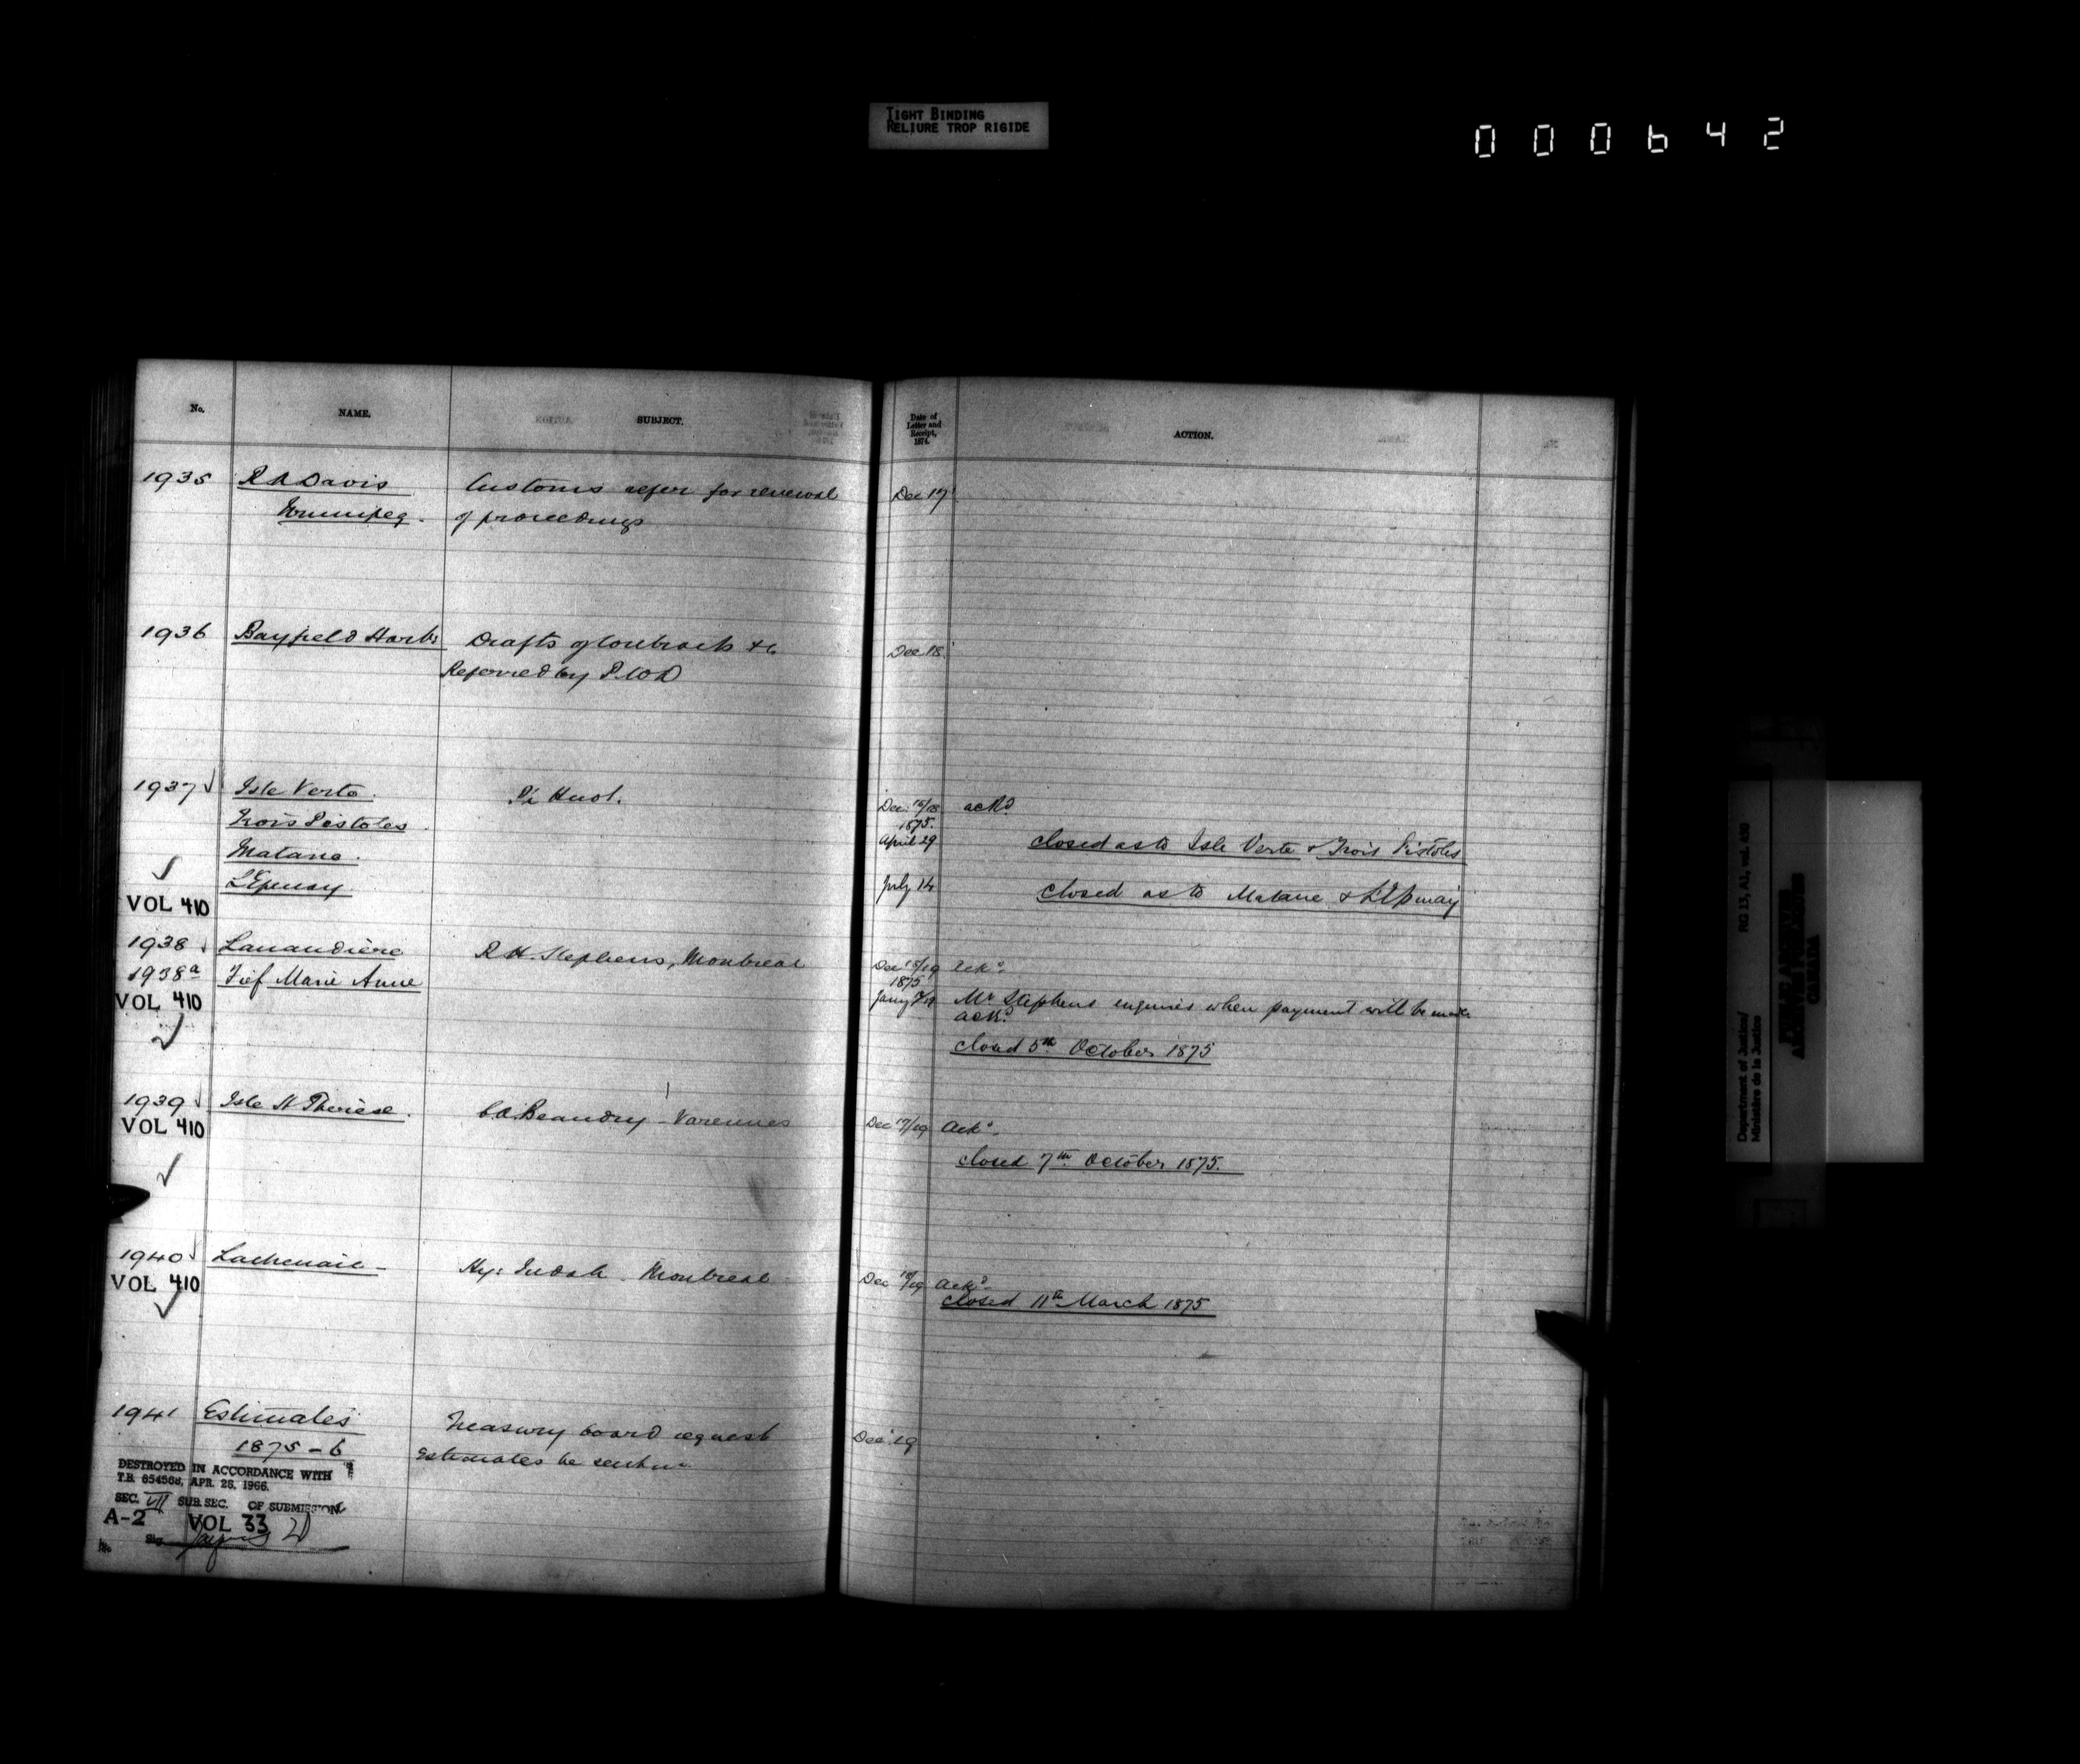 TIGHT BINDING
RELIURE TROP RIGIDE
000642
No. NAME. SUBJECT. Date of Letter and Receipt, 1874. ACTION.
1935 R A Davis Customs refer for renewal Dec 17
Winnipeg. of proceedings
1936 Bayfield Harbr Drafts of Contracts &c Dec 18
Referred by P.W.D
1937 Isle Verte. Huot. Dec. 16/18 ackd
Trois Pistoles 1875.
Matane. April 29 closed as to Isle Verte & Trois Pistoles
L'Epinay July 14 closed as to Matane & L'Epinay
VOL 410
1938 Lanaudière R. H. Stephens, Montreal Dec 18/19 Ackd
1938a Fief Marie Anne 1875
VOL 410 Jany Mr Stephens enquires when payment will be made
ackd
closed 5th October 1875
1939 Isle St Therèse. Beaudry - Varennes Dec 17/19 Ackd
VOL 410
closed 7th October 1875.
1940 Lachenaie - Hy: Judah. Montreal Dec 18/19 Ackd
VOL 410 closed 11th March 1875
1941 Estimates Treasury board request Dec 19
1875-6 Estimates be sent in
DESTROYED IN ACCORDANCE WITH
T.B. 654568, APR. 28, 1966.
SEC. VII SUB. SEC. OF SUBMISSION
A-2 VOL 33
Sig
Department of Justice/ RG 13, A2, vol. 430
Ministère de la Justice
PUBLIC ARCHIVES
ARCHIVES PUBLIQUES
CANADA